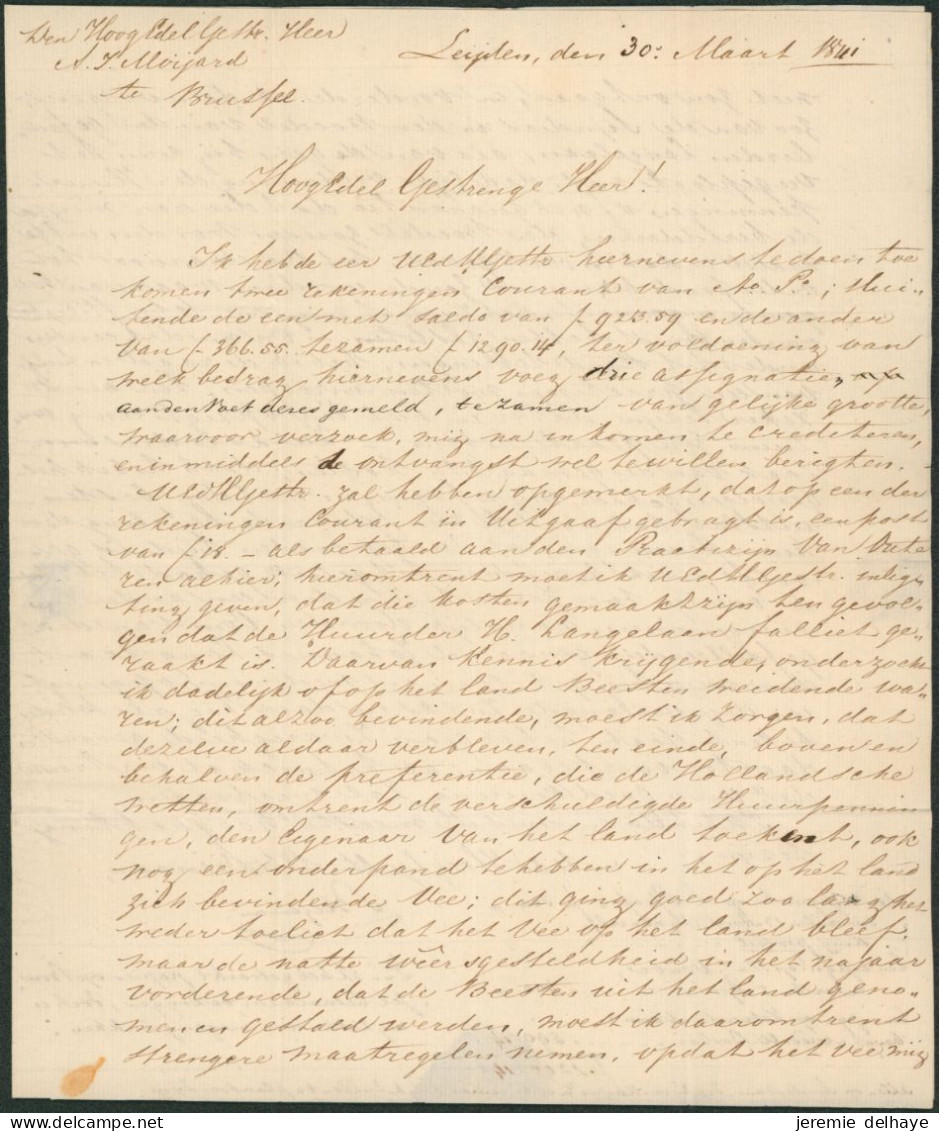 Den HoogEdel Gestr. Heer
A. J. Moijard
te Brussel.
Leijden, den 30e Maart 1841
HoogEdel Gestrenge Heer!
Ik heb de eer UEdHGestr hiernevens te doen toe
komen twee rekeningen Courant van Ao. Po.; slui-
tende de een met saldo van f 923.59 en de ander
van f 366.55. te zamen f 1290.14, ter voldoening van
welk bedrag hiernevens voeg drie assignatie,
aan den Voet dezes gemeld, te zamen van gelijke grootte,
waarvoor verzoek, mij na inkomen te crediteren,
en inmiddels de ontvangst wel te willen berigten.
UEdHGestr. zal hebben opgemerkt, dat op een der
rekeningen Courant in Uitgaaf gebragt is, een post
van f 18. - als betaald aan den Practizijn Van Oute
ren alhier; hieromtrent moet ik UEdHGestr. inlig-
ting geven, dat die kosten gemaakt zijn ten gevol-
gen dat de Huurder H. Langelaan falliet ge-
raakt is. Daarvan kennis krijgende, onderzocht
ik dadelijk of op het land Beesten weidende wa-
ren; dit alzoo bevindende, moest ik zorgen, dat
dezelve aldaar verbleven, ten einde, boven en
behalven de preferentie, die de Hollandsche
wetten, omtrent de verschuldigde Huurpennin
gen, den Eigenaar van het land toekent, ook
nog een onderpand te hebben in het op het land
zich bevindende Vee; dit ging goed zoo lang het
weder toeliet dat het Vee op het land bleef.
maar de natte wêersgesteldheid in het najaar
vorderende, dat de Beesten uit het land geno-
men en gestald werden, moest ik daaromtrent
strengere maatregelen nemen, opdat het vee mij
jeremie delhaye